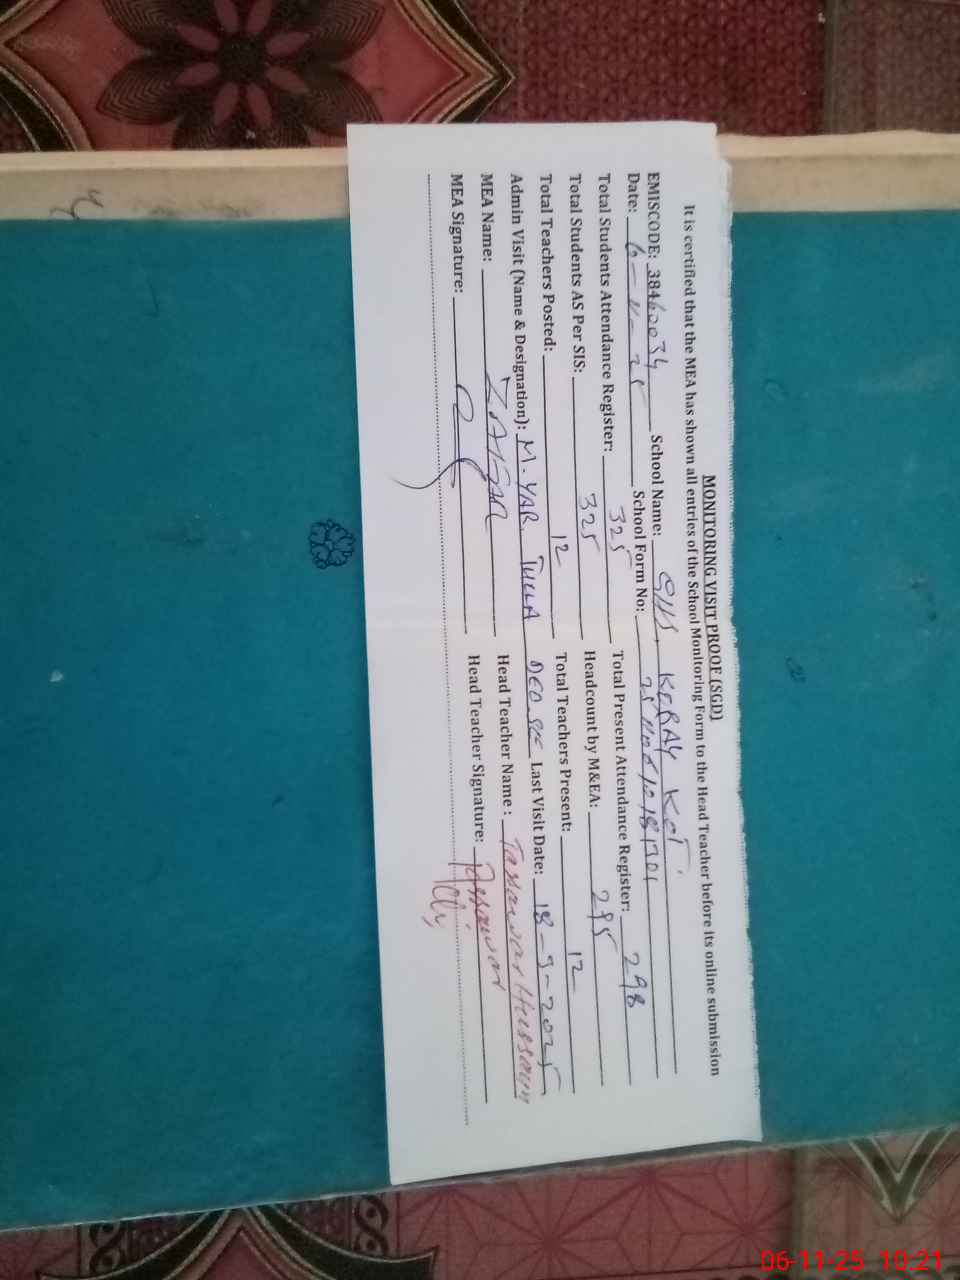 MONITORING VISIT PROOF (SGD)
It is certified that the MEA has shown all entries of the School Monitoring Form to the Head Teacher before its online submission
EMISCODE: 38460034 School Name: GHS, KORAY KOT
Date: 6-11-25 School Form No:
Total Students Attendance Register: 325 Total Present Attendance Register: 298
Total Students AS Per SIS: 325 Headcount by M&EA: 295
Total Teachers Posted: 12 Total Teachers Present: 12
Admin Visit (Name & Designation): M. YAR. TULLA DEO SE Last Visit Date: 18-9-2025
MEA Name: ZAFAR Head Teacher Name : Tassawar Hussain
MEA Signature: Head Teacher Signature: Tassawar
06-11-25 10:21